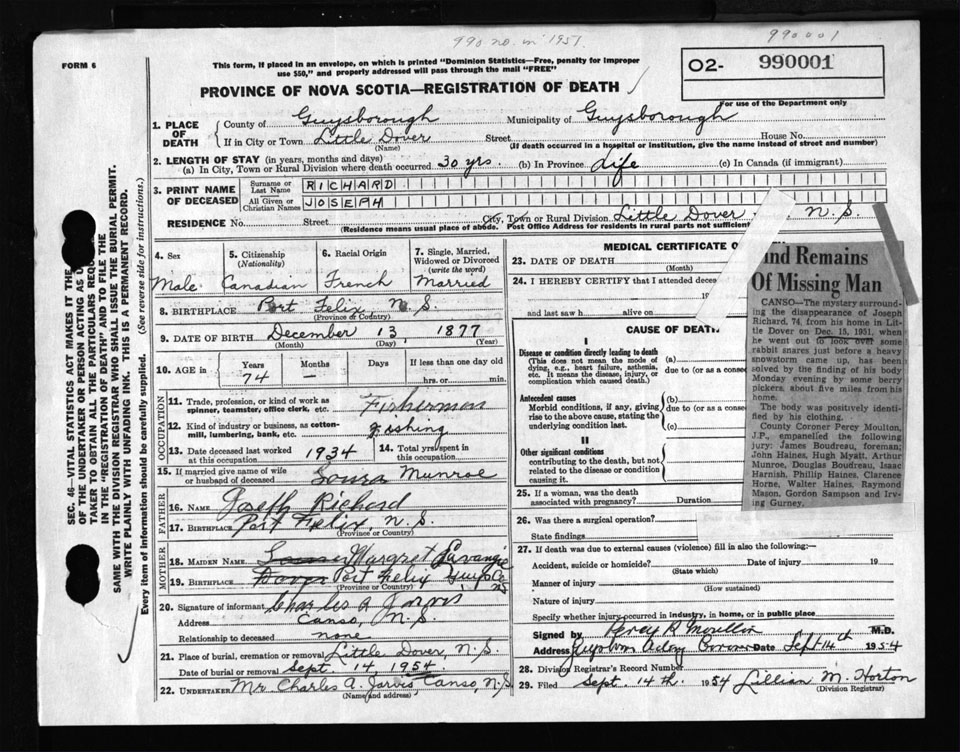 990 no. in 1951.
990001
FORM 6
This form, if placed in an envelope, on which is printed "Dominion Statistics—Free, penalty for improper
use $50," and properly addressed will pass through the mail "FREE"
PROVINCE OF NOVA SCOTIA—REGISTRATION OF DEATH
O2- 990001
For use of the Department only
1. PLACE OF DEATH
County of Guysborough Municipality of Guysborough
If in City or Town Little Dover Street House No.
(Name) (If death occurred in a hospital or institution, give the name instead of street and number)
2. LENGTH OF STAY (in years, months and days)
(a) In City, Town or Rural Division where death occurred 30 yrs. (b) In Province Life (c) In Canada (if immigrant)
3. PRINT NAME OF DECEASED
Surname or Last Name RICHARD
All Given or Christian Names JOSEPH
RESIDENCE No. Street City, Town or Rural Division Little Dover N.S.
(Residence means usual place of abode. Post Office Address for residents in rural parts not sufficient
4. Sex
Male
5. Citizenship
(Nationality)
Canadian
6. Racial Origin
French
7. Single, Married,
Widowed or Divorced
(write the word)
Married
8. BIRTHPLACE Port Felix N S.
(Province or Country)
9. DATE OF BIRTH December 13 1877
(Month) (Day) (Year)
10. AGE in Years Months Days If less than one day old
74 — hrs. or min.
OCCUPATION
11. Trade, profession, or kind of work as
spinner, teamster, office clerk, etc. Fisherman
12. Kind of industry or business, as cotton-
mill, lumbering, bank, etc. Fishing
13. Date deceased last worked
at this occupation 1934
14. Total yrs. spent in
this occupation
15. If married give name of wife
or husband of deceased Munroe
FATHER
16. NAME Joseph Richard
17. BIRTHPLACE Port Felix, N.S.
(Province or Country)
MOTHER
18. MAIDEN NAME Margret
19. BIRTHPLACE Port Felix Guys Co
(Province or Country) NS
20. Signature of informant Charles A Jarvis
Address Canso, N.S.
Relationship to deceased none
21. Place of burial, cremation or removal Little Dover, N.S.
Date of burial or removal Sept. 14 1954.
22. UNDERTAKER Mr. Charles A. Jarvis Canso, N.S.
(Name and address)
MEDICAL CERTIFICATE O
23. DATE OF DEATH
(Month)
24. I HEREBY CERTIFY that I attended decea
19
and last saw h alive on
CAUSE OF DEATH
I
Disease or condition directly leading to death
(This does not mean the mode of
dying, e.g., heart failure, asthenia,
etc. It means the disease, injury, or
complication which caused death.)
(a)
due to (or as a conse
Antecedent causes
Morbid conditions, if any, giving
rise to the above cause, stating the
underlying condition last.
(b)
due to (or as a conse
(c)
II
Other significant conditions
contributing to the death, but not
related to the disease or condition
causing it.
25. If a woman, was the death
associated with pregnancy? Duration
26. Was there a surgical operation?
State findings
27. If death was due to external causes (violence) fill in also the following:—
Accident, suicide or homicide? Date of injury 19
(State which)
Manner of injury
(How sustained)
Nature of injury
Specify whether injury occurred in industry, in home, or in public place
Signed by Percy R Moulton M.D.
Address Coroner Date Sept 14th 1954
28. Division Registrar's Record Number
29. Filed Sept. 14th. 1954 Lillian M. Horton
(Division Registrar)
ind Remains
Of Missing Man
CANSO—The mystery surround-
ing the disappearance of Joseph
Richard, 74, from his home in Lit-
tle Dover on Dec. 15, 1951, when
he went out to look over some
rabbit snares just before a heavy
snowstorm came up, has been
solved by the finding of his body
Monday evening by some berry
pickers, about five miles from his
home.
The body was positively identi-
fied by his clothing.
County Coroner Percy Moulton,
J.P., empanelled the following
jury: James Boudreau, foreman;
John Haines, Hugh Myatt, Arthur
Munroe, Douglas Boudreau, Isaac
Harnish, Phillip Haines, Clarence
Horne, Walter Haines, Raymond
Mason, Gordon Sampson and Irv-
ing Gurney.
SEC. 46—VITAL STATISTICS ACT MAKES IT THE
OF THE UNDERTAKER OR PERSON ACTING AS U
TAKER TO OBTAIN ALL THE PARTICULARS REQU
IN THE "REGISTRATION OF DEATH" AND TO FILE THE
SAME WITH THE DIVISION REGISTRAR WHO SHALL ISSUE THE BURIAL PERMIT.
WRITE PLAINLY WITH UNFADING INK. THIS IS A PERMANENT RECORD.
Every item of information should be carefully supplied. (See reverse side for instructions.)